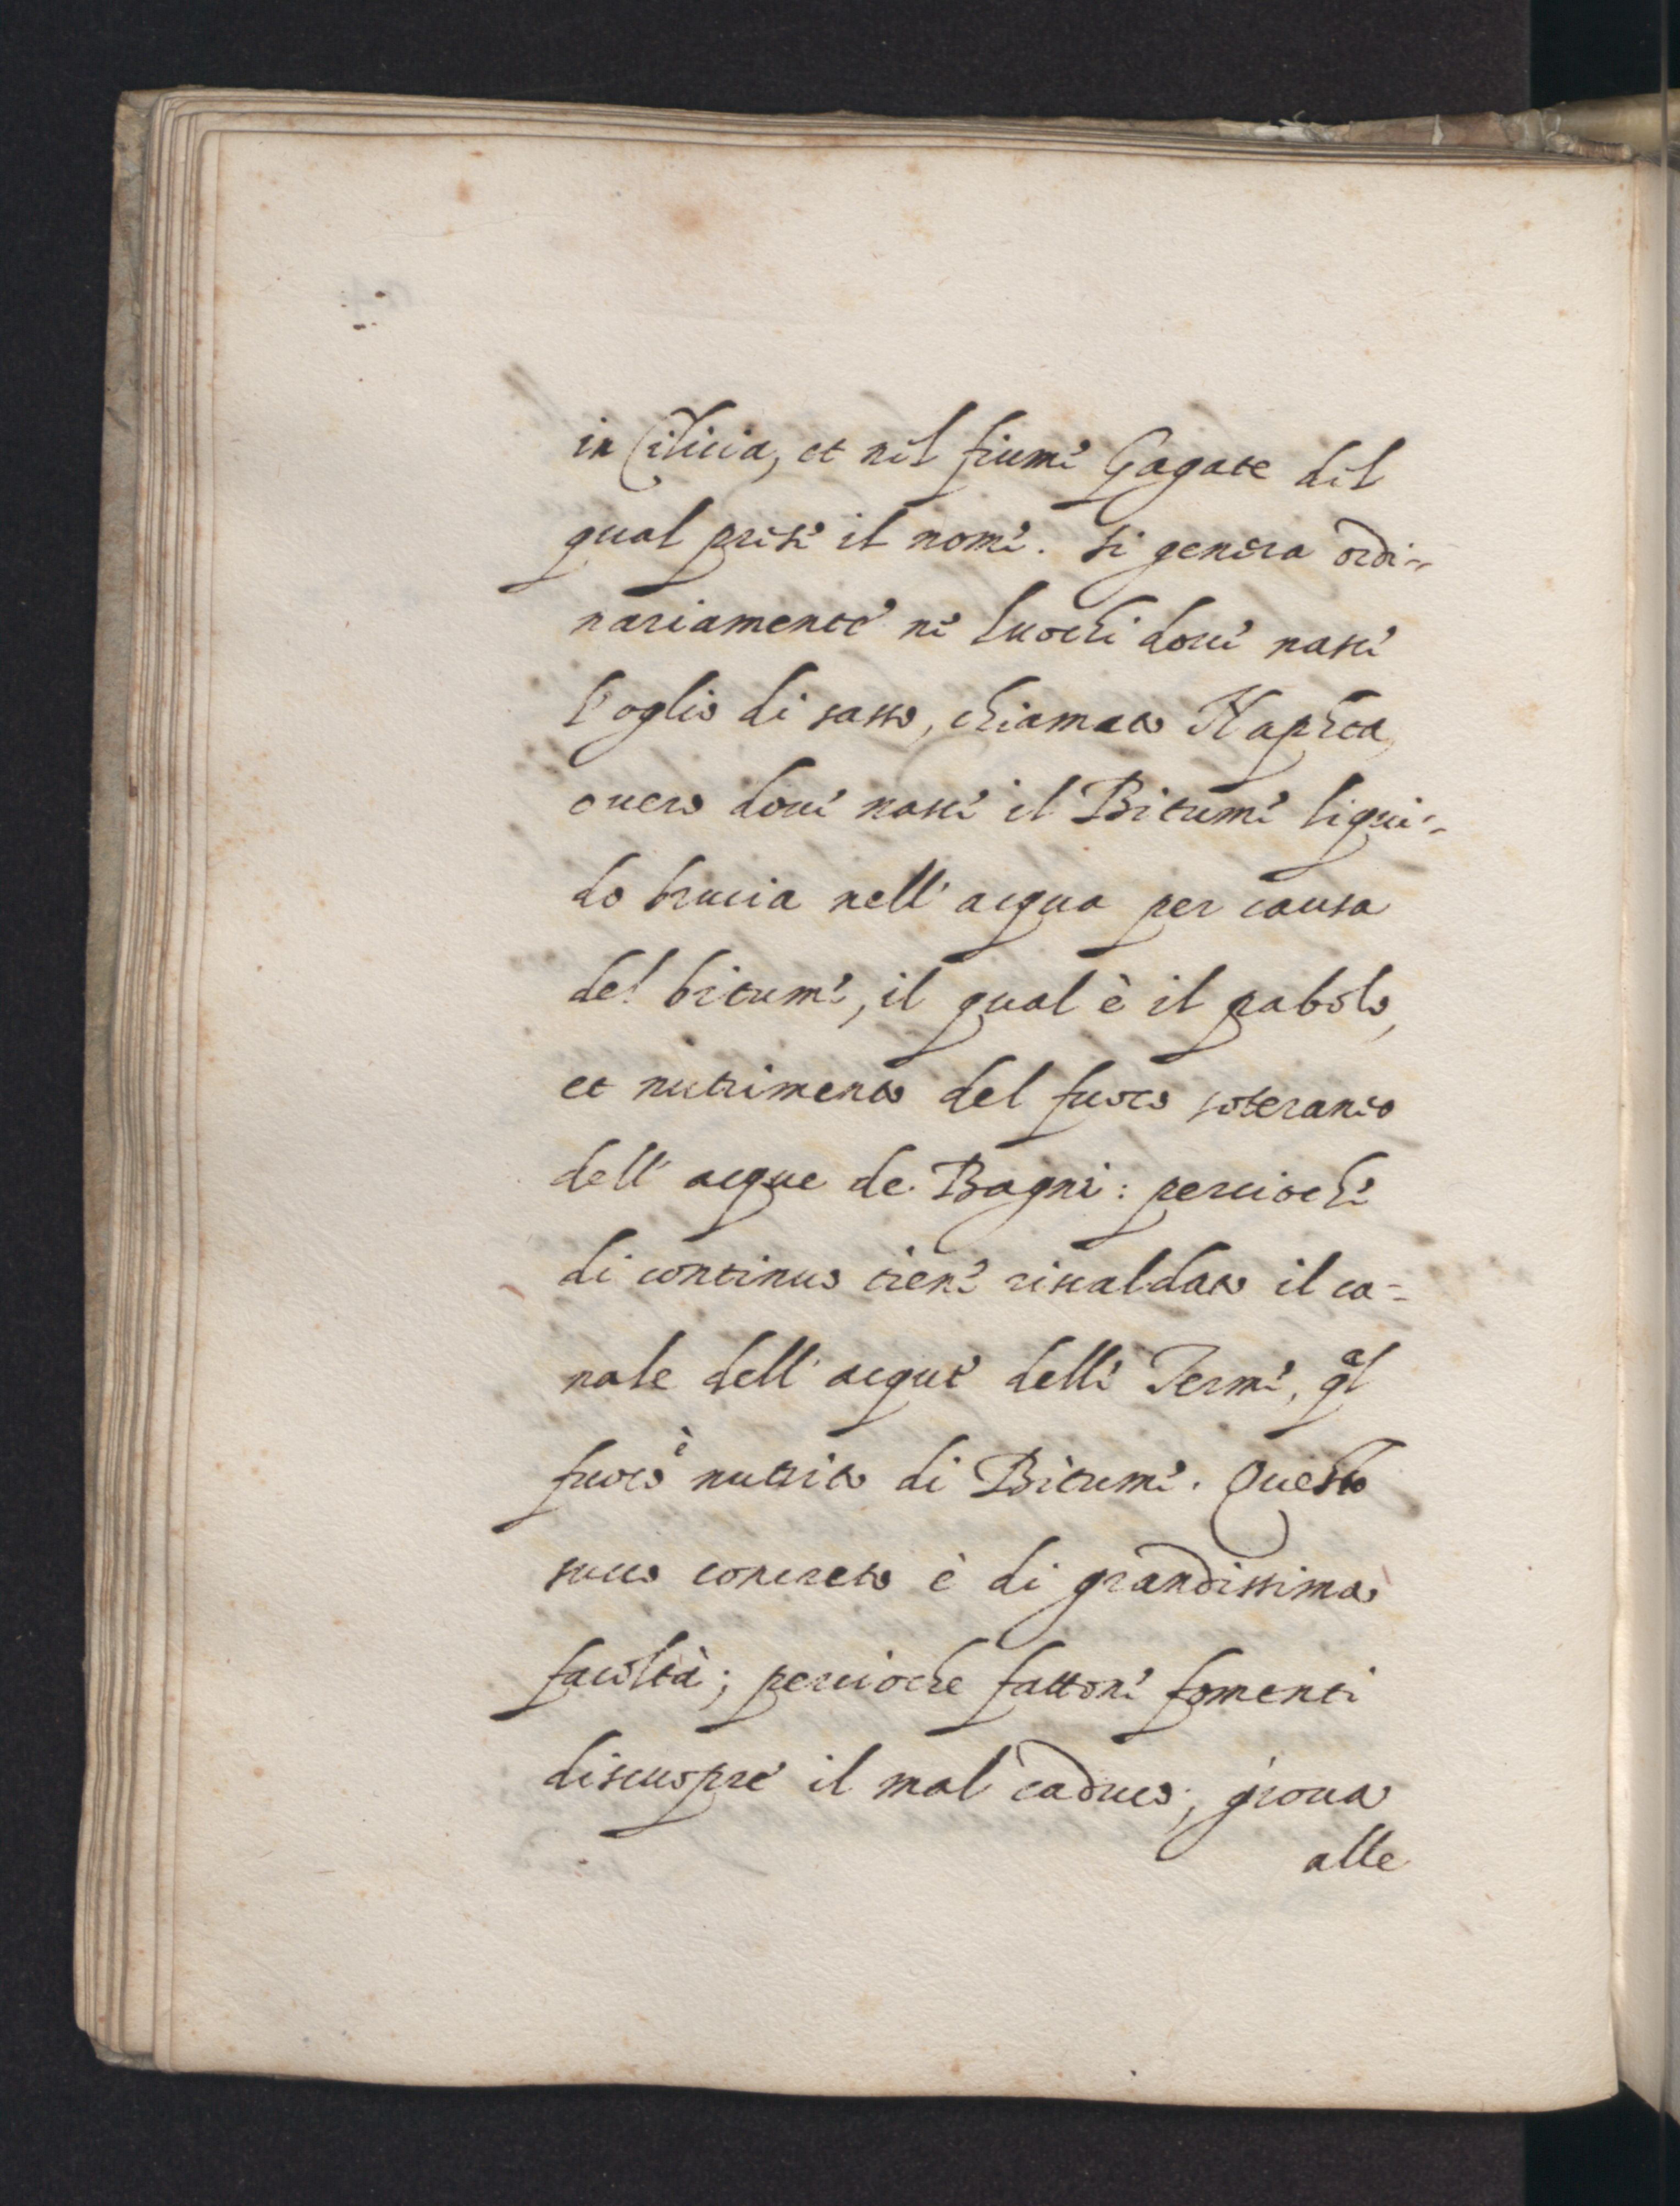 in Cilicia, et nel fiume Gagate del
qual prese il nome. Si genera ordi=
nariamente ne luochi dove nasce
l'oglio di sasso, chiamato Naphta,
overo dove nasce il Bitume liqui=
do brucia nell'acqua per causa
del bitume, il qual è il pabolo,
et nutrimento del fuoco soteraneo
dell'acque de Bagni: percioche
di continuo tiene riscaldato il ca=
nale dell'acque delle Terme, ql
fuoco è nutrito di Bitume. Questo
succo concreto è di grandissima
facoltà; percioche fattone fomenti
discuopre il mal caduco; giova
alle